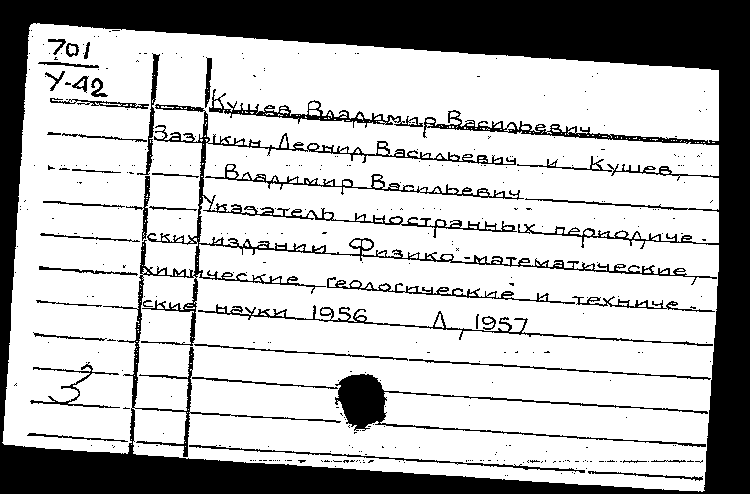 701
У-42
Кушев, Владимир Васильевич
Зазыкин, Леонид Васильевич и Кушев,
Владимир Васильевич
Указатель иностранных периодиче-
ских изданий Физико-математические,
химические, геологические и техниче-
ские науки 1956 Л, 1957
3